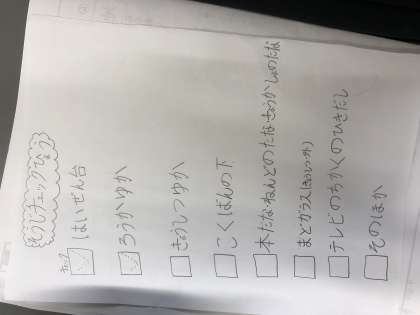 そうじチェックひょう
チェック
はいぜん台
ろうかゆか
きょうしつゆか
こくばんの下
本だな・ねんどのたな・きょうかしょのたな
まどガラス
テレビのちかくのひきだし
そのほか